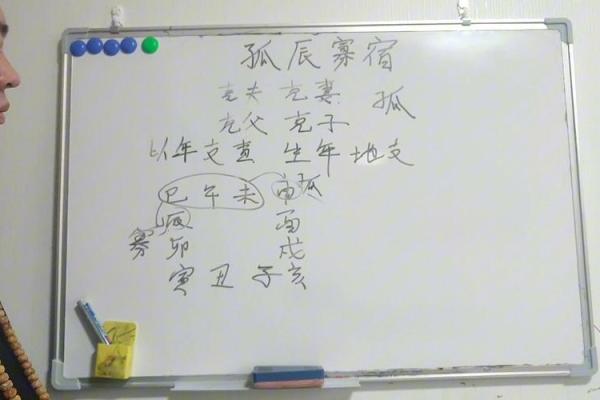 孤辰寡宿
克夫 克妻 孤
克父 克子
以年支查 生年地支
巳午未申孤
辰 酉
寡 卯 戌
寅丑子亥